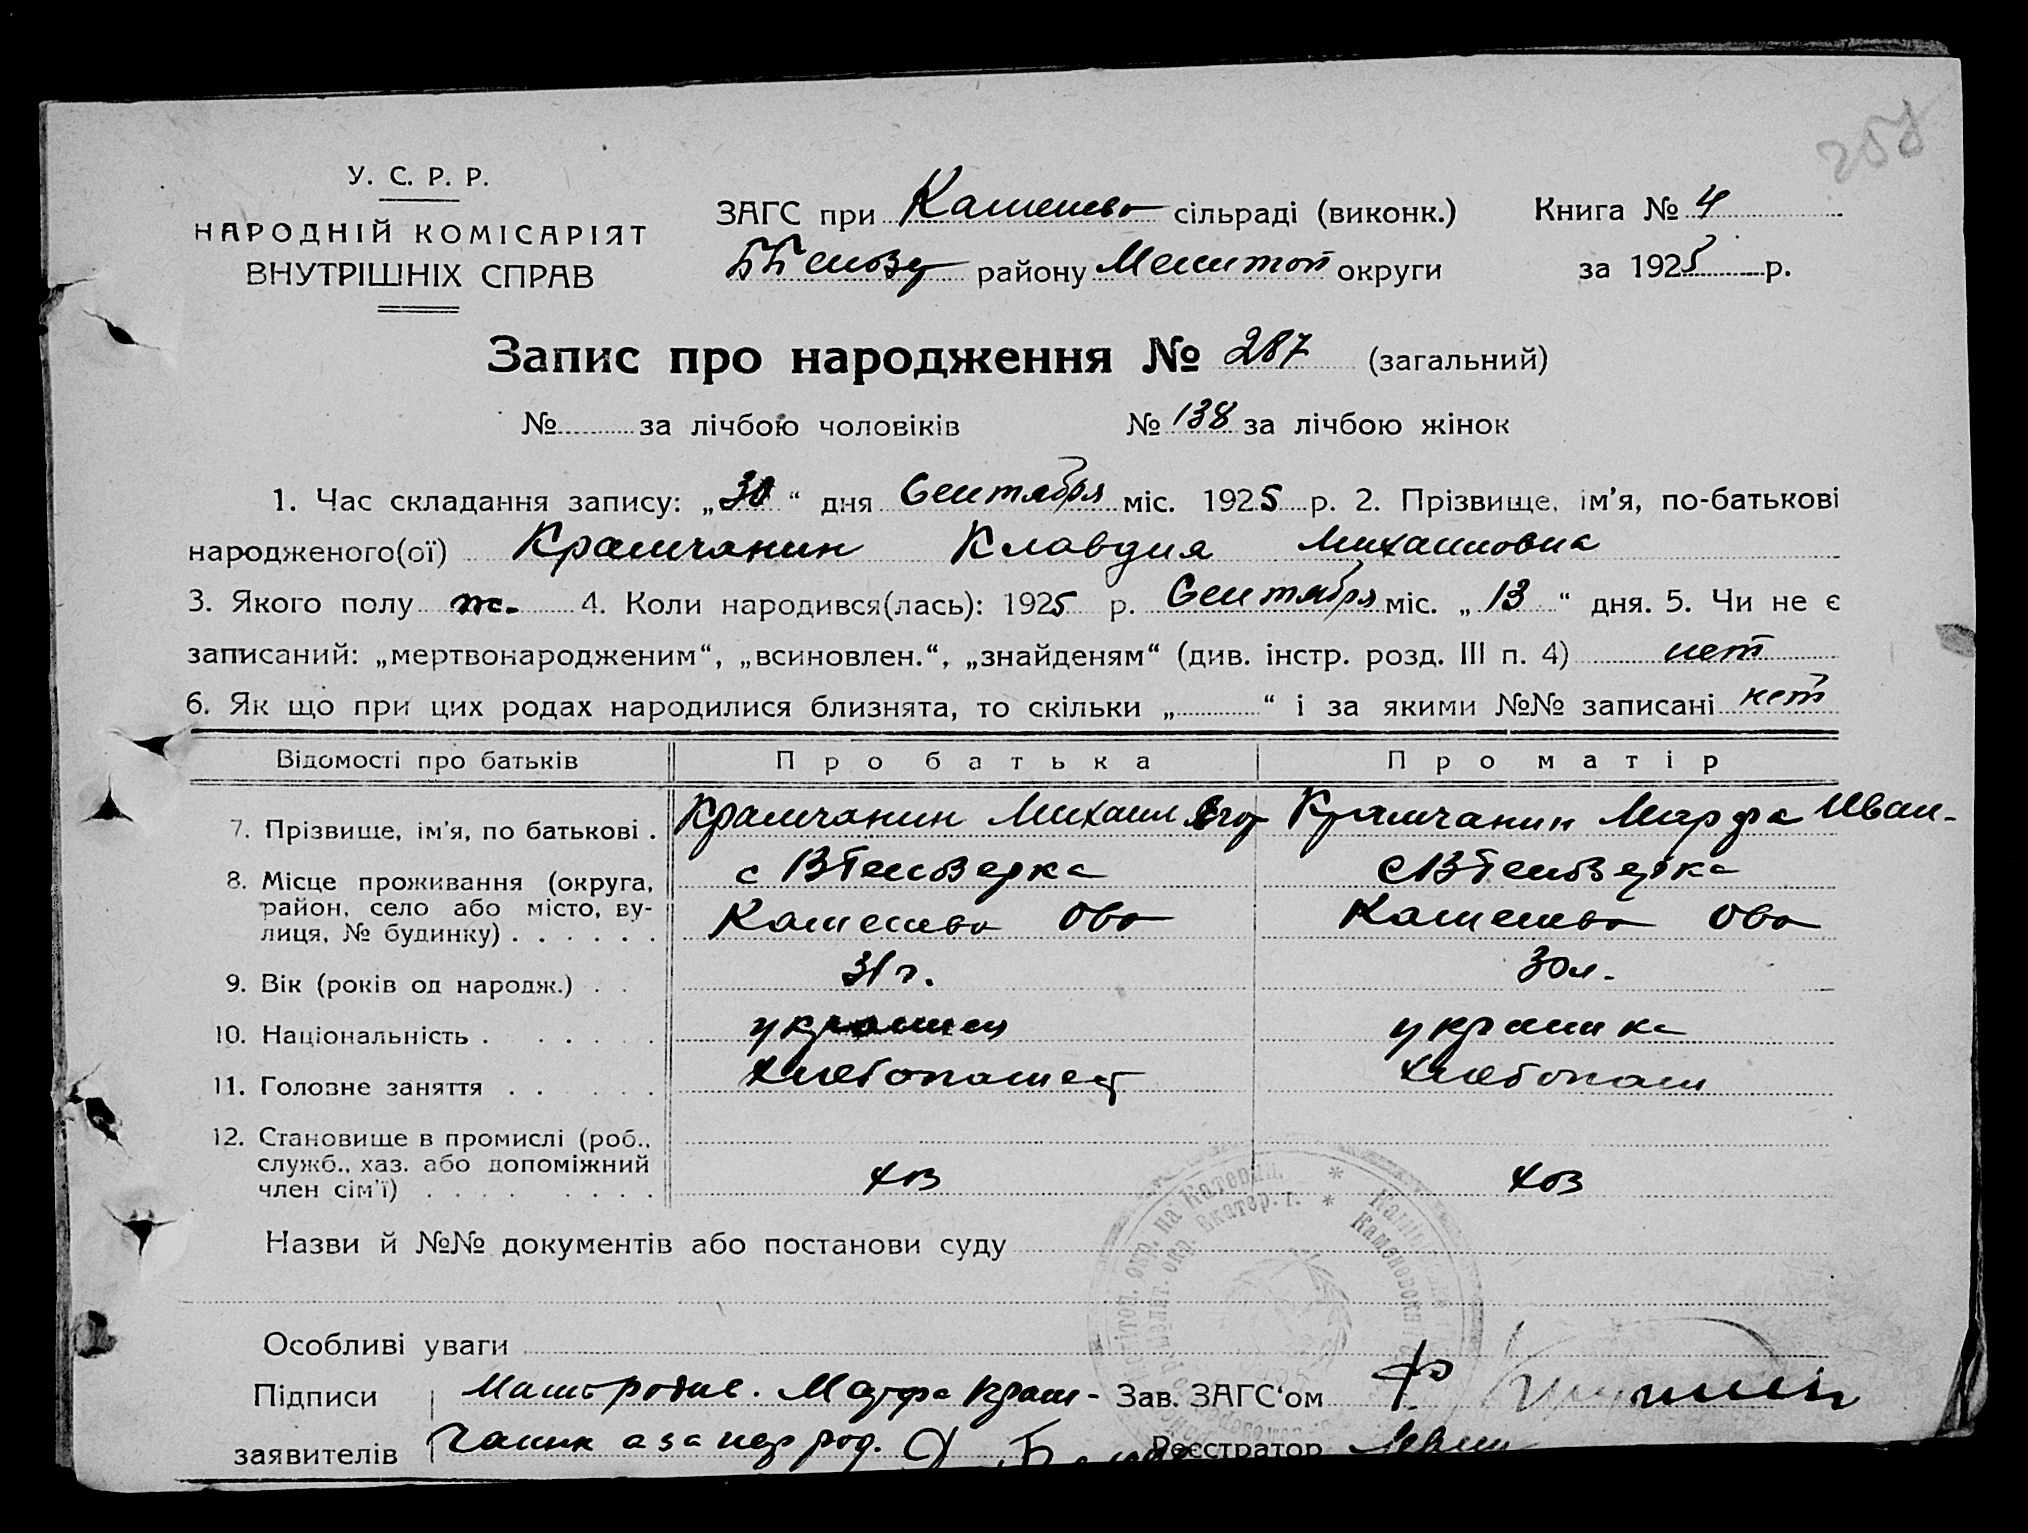 258
У. С. Р. Р.
НАРОДНІЙ КОМІСАРІЯТ
ВНУТРІШНІХ СПРАВ
ЗАГС при Каменево сільраді (виконк.)
Книга № 4
району Мелитоп округи
за 1925 р.
Запис про народження № 287 (загальний)
№ за лічбою чоловіків № 138 за лічбою жінок
1. Час складання запису: „30“ дня Сентября міс. 1925 р. 2. Прізвище, ім'я, по-батькові
народженого(ої) Крамчанин Клавдия Михаиловна
3. Якого полу ж. 4. Коли народився(лась): 1925 р. Сентября міс. „13“ дня. 5. Чи не є
записаний: „мертвонародженим“, „всиновлен.“, „знайденям“ (див. інстр. розд. III п. 4) нет
6. Як що при цих родах народилися близнята, то скільки „ “ і за якими №№ записані нет
Відомості про батьків Про батька Про матір
7. Прізвище, ім'я, по батькові . Крамчанин Михаил Егор Крамчанин Марфа Иван-
8. Місце проживання (округа,
район, село або місто, ву-
лиця, № будинку) . . . . . .
с ВБелозерка с ВБелозерка
Каменево Ово Каменево Ово
9. Вік (років од народж.) . . 31 г. 30 л.
10. Національність . . . . . . украинец украинка
11. Головне заняття . . . . . . хлебопашец хлебопаш
12. Становище в промислі (роб.,
служб., хаз. або допоміжний
член сім'ї) . . . . . . . . хоз хоз
Назви й №№ документів або постанови суду
Особливі уваги
Підписи
заявителів
Марфа Крам-
чанин а за нея рос.
Зав. ЗАГС'ом
Реєстратор